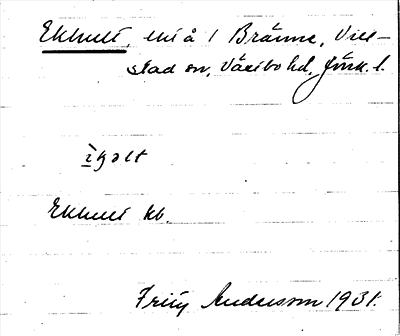 Ekhult, enh å 1 Bränne, Vill-
stad sn, Västbo hd. Jönk. l.
Ekhult kb.
Fritz Andersson 1931.